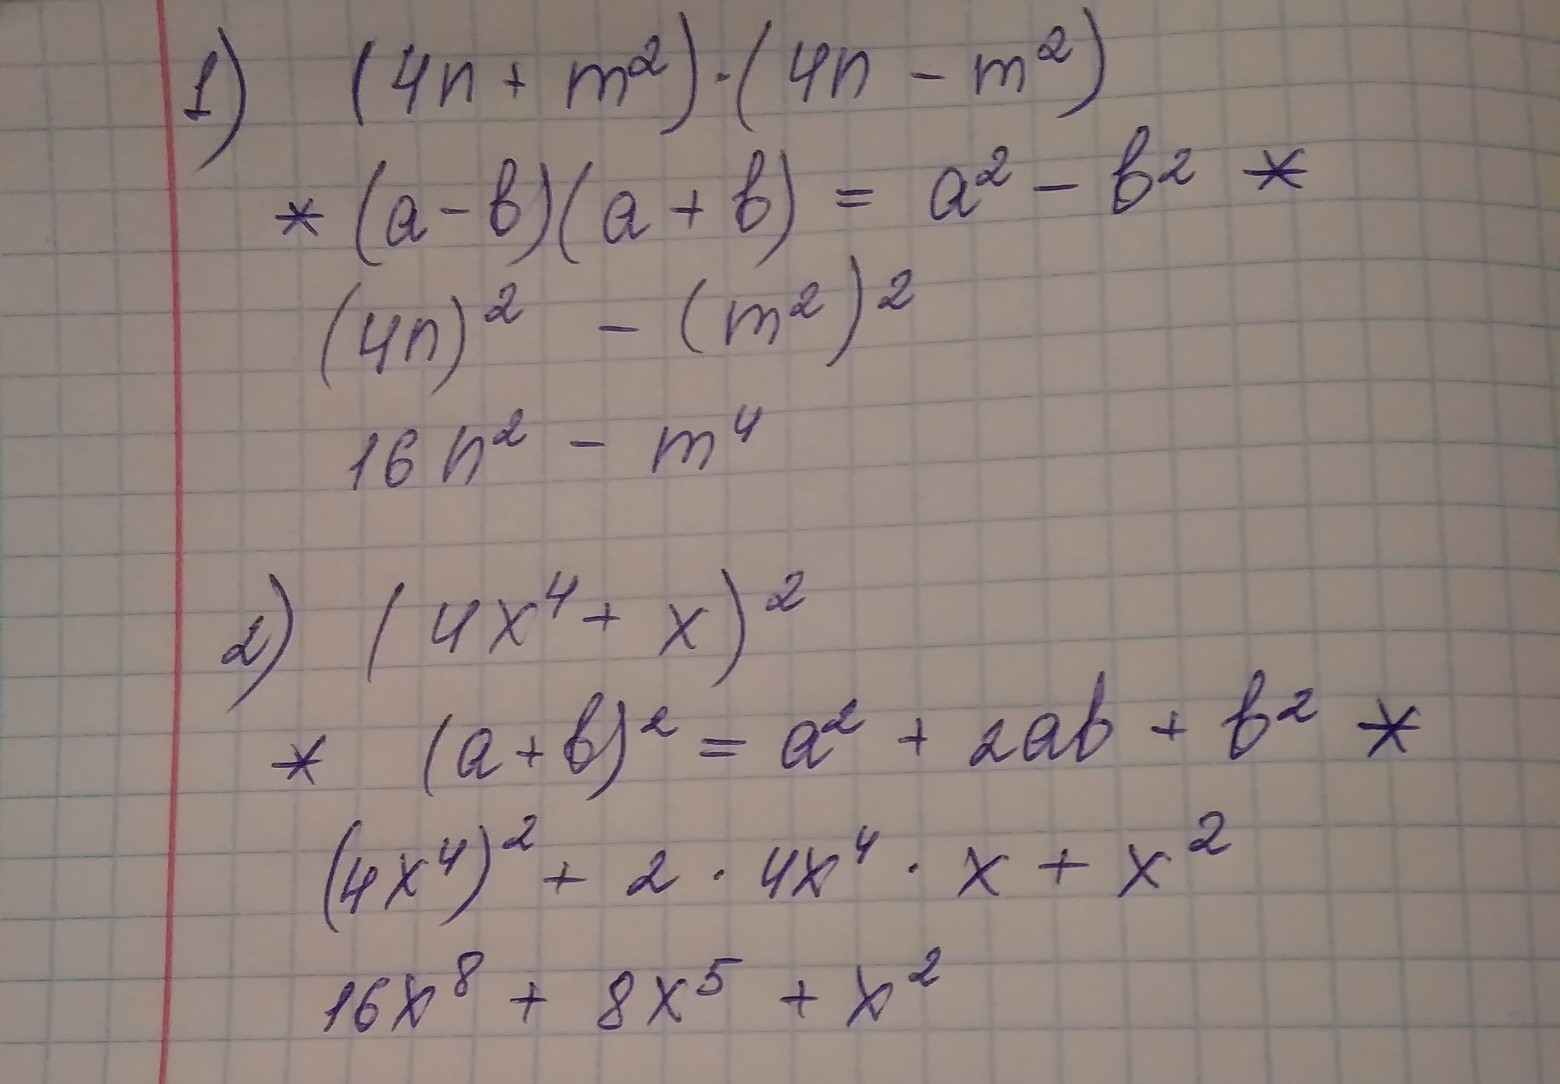 1) (4n + m²)·(4n - m²)
* (a-b)(a + b) = a² - b² *
(4n)² - (m²)²
16n² - m⁴
2) (4x⁴ + x)²
* (a+b)² = a² + 2ab + b² *
(4x⁴)² + 2 · 4x⁴ · x + x²
16x⁸ + 8x⁵ + x²